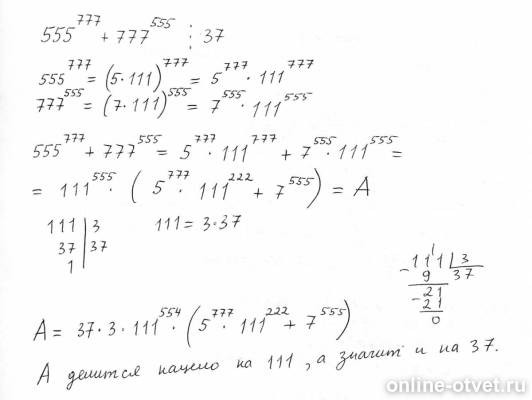 555^777 + 777^555 ⋮ 37
555^777 = (5·111)^777 = 5^777 · 111^777
777^555 = (7·111)^555 = 7^555 · 111^555
555^777 + 777^555 = 5^777 · 111^777 + 7^555 · 111^555 =
= 111^555 · (5^777 · 111^222 + 7^555) = A
111 | 3
37 | 37
1
111 = 3·37
111 | 3
- 9 37
21
- 21
0
A = 37·3·111^554 · (5^777 · 111^222 + 7^555)
A делится нацело на 111, а значит и на 37.
online-otvet.ru